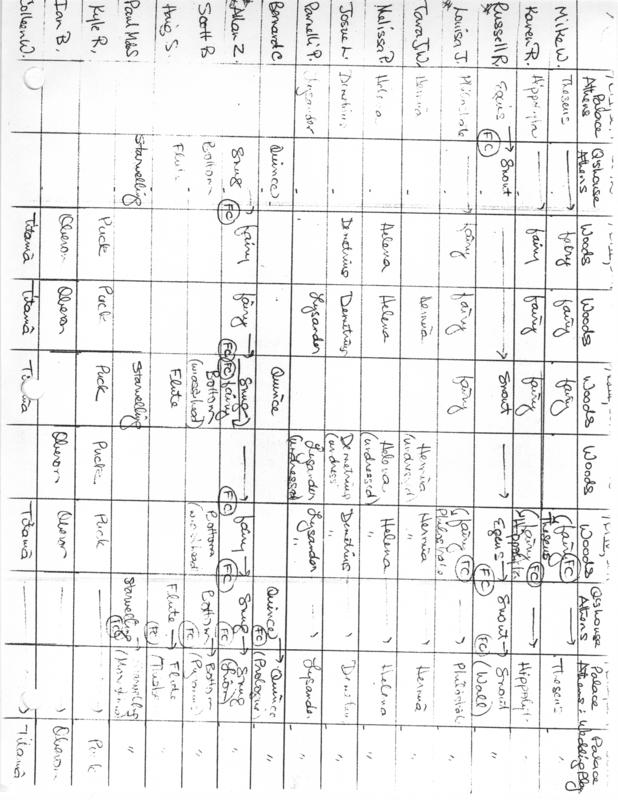 Palace Athens | Q'shouse Athens | Woods | Woods | Woods | Woods | Woods | Q'shouse Athens | Palace Athens : Wedding Play | Palace
Mike W. | Theseus | → | fairy | fairy | fairy | | (fairy FC) Theseus | → | Theseus | "
Karen R. | Hippolyta | → | fairy | fairy | fairy | | (fairy FC) Hippolyta | → | Hippolyta | "
*Russell R. | Egeus → FC | Snout | → | Snout | → | Egeus → FC | Snout → FC | Snout (Wall) | "
*Louisa J. | Philostrate | → | fairy | fairy | fairy | | (fairy FC) Philostrate | → | Philostrate | "
Tara J.W. | Hermia | Hermia | Hermia (undressed) | Hermia | " | Hermia | "
Melissa P. | Helena | Helena | Helena | Helena (undressed) | Helena | " | Helena | "
Josue L. | Demetrius | Demetrius | Demetrius | Demetrius (undress) | Demetrius " | " | "
Parnelli P. | Lysander | Lysander | Lysander (undressed) | Lysander " | " | Lysander | "
Bernard C. | Quince | Quince | Quince → FC | Quince (Prologue) | "
*Allan Z. | Snug → FC | fairy | fairy → FC | FC Snug fairy | → FC | fairy → FC | Snug → FC | Snug (Lion) | "
Scott B | Bottom | Bottom (w/ass head) | Bottom (w/ass head) | Bottom → FC | Bottom (Pyramus) | "
S. | Flute | Flute | Flute → FC | Flute | "
Paul | Starveling | Starveling | Starveling → FC | Starveling | "
Kyle R. | Puck | Puck | Puck | Puck | Puck | → | Puck
Ian B. | Oberon | Oberon | Oberon | Oberon | → | Oberon
Colleen W. | Titania | Titania | Titania | Titania | → | Titania